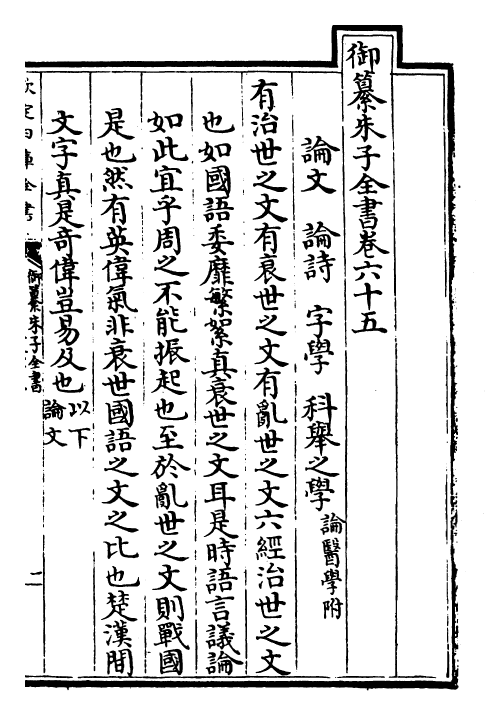 御纂朱子全書卷六十五
論文 論詩 字學 科舉之學論醫學附
有治世之文有衰世之文有亂世之文六經治世之文
也如國語委靡繁絮真衰世之文耳是時語言議論
如此宜乎周之不能振起也至於亂世之文則戰國
是也然有英偉氣非衰世國語之文之比也楚漢間
文字真是奇偉豈易及也以下論文
欽定四庫全書
御纂朱子全書